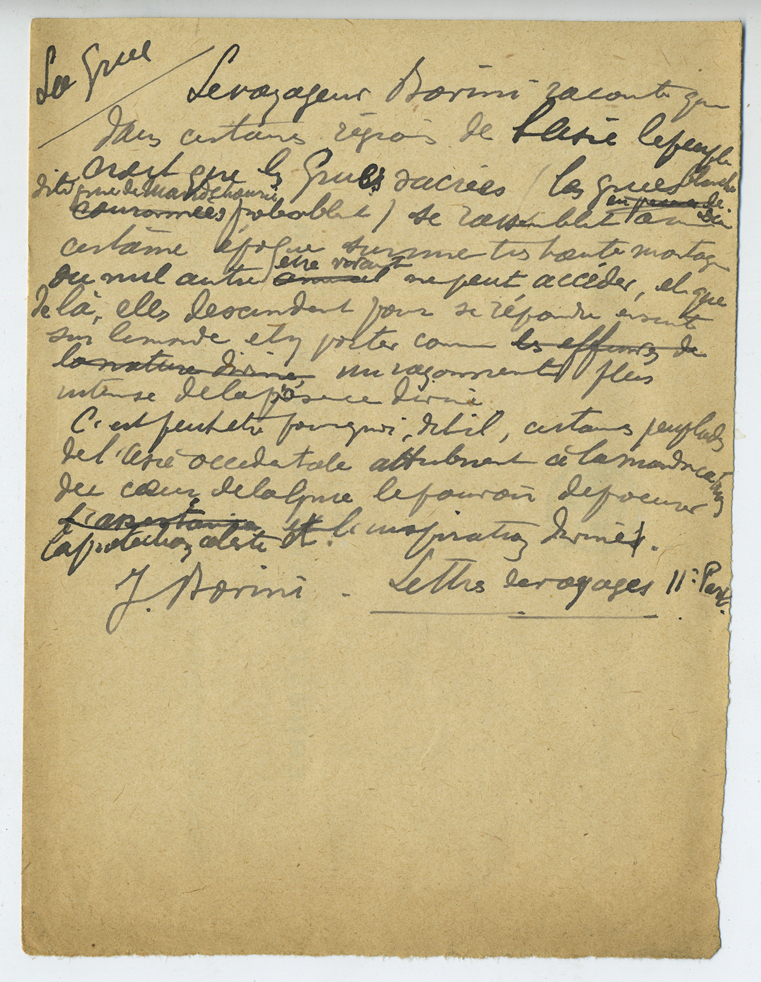 La Grue
Le voyageur Borini raconte que
dans certaines régions de l'Asie le peuple
croit que les Grues sacrées (les grues blanches
dites grue de Mandchourie
couronnées probablement) se rassemblent à une
certaine époque sur une très haute montagne
où nul autre être vivant animal ne peut accéder, et que
de là, elles descendent pour se répandre ensuite
sur le monde et y porter comme les effluves de
la nature divine, un rayonnement plus
intense de la présence divine
C'est peut être pourquoi, dit il, certaines peuplades
de l'Asie occidentale attribuent à la manducation
du cœur de la Grue le pouvoir de procurer
la protection céleste et l'inspiration divine.
J. Borini - Lettres de voyages IIe Part.